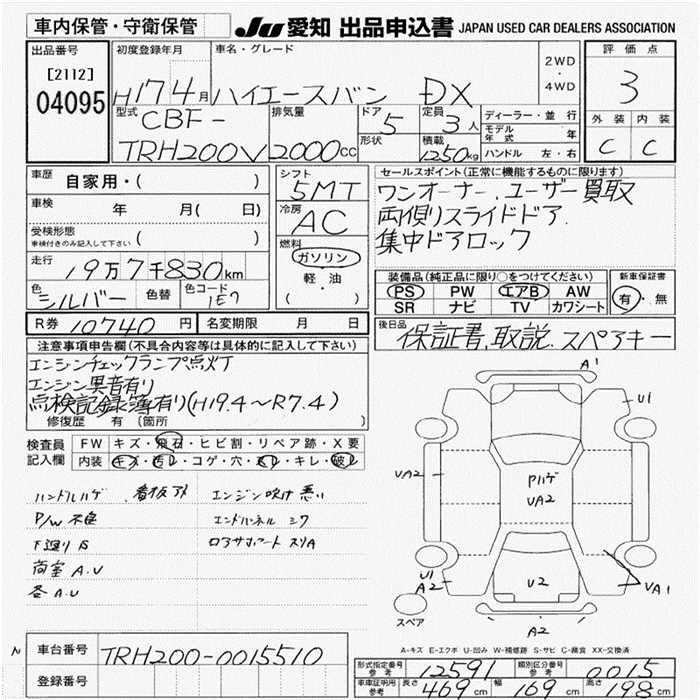 車内保管・守衛保管
JU 愛知 出品申込書 JAPAN USED CAR DEALERS ASSOCIATION
出品番号
[2112]
04095
初度登録年月
H17 4月
車名・グレード
ハイエースバン DX
2WD
・
4WD
評価点
3
外装 内装
C C
型式
CBF-
TRH200V
排気量
2000cc
ドア
5
形状
定員
3人
積載
1250kg
ディーラー・並行
モデル年式 年
ハンドル 左・右
車歴
自家用・( )
車検 年 月( 日)
受検形態
車検付きのみ記入して下さい ( )
走行
19万7千830km
色
シルバー
色替
色コード
1E7
R券 10740円 名変期限 月 日
シフト
5MT
冷房
AC
燃料
ガソリン
軽・油
( )
セールスポイント(正常に機能するものに限ります)
ワンオーナー、ユーザー買取
両側リスライドドア.
集中ドアロック
装備品(純正品に限り○をつけてください)
PS PW エアB AW
SR ナビ TV カワシート
新車保証書
有・無
後日品
保証書,取説.スペアキー
注意事項申告欄(不具合内容等は具体的に記入して下さい)
エンジンチェックランプ点灯
エンジン異音有り
点検記録簿有り(H19.4〜R7.4)
修復歴 有(箇所 )
検査員記入欄
FW キズ・飛石・ヒビ割・リペア跡・X要
内装 キズ・汚レ・コゲ・穴・スレ・キレ・破レ
ハンドルハゲ 看板アト エンジン吹け悪い
P/W 不良 エンドパネル ミワ
下廻りS
荷室A.U
各A.U
A1
U1
UA2
Pハゲ
UA2
UA2
U1
A2
U2
UA1
A2
スペア
A-キズ E-エクボ U-凹み W-補修跡 S-サビ C-腐食 XX-交換済
車台番号 TRH200-0015510
登録番号
形式指定番号 参考 12591 類別区分番号 参考 0015
車庫証明用 参考 長さ 469cm 幅 169cm 高さ 198cm